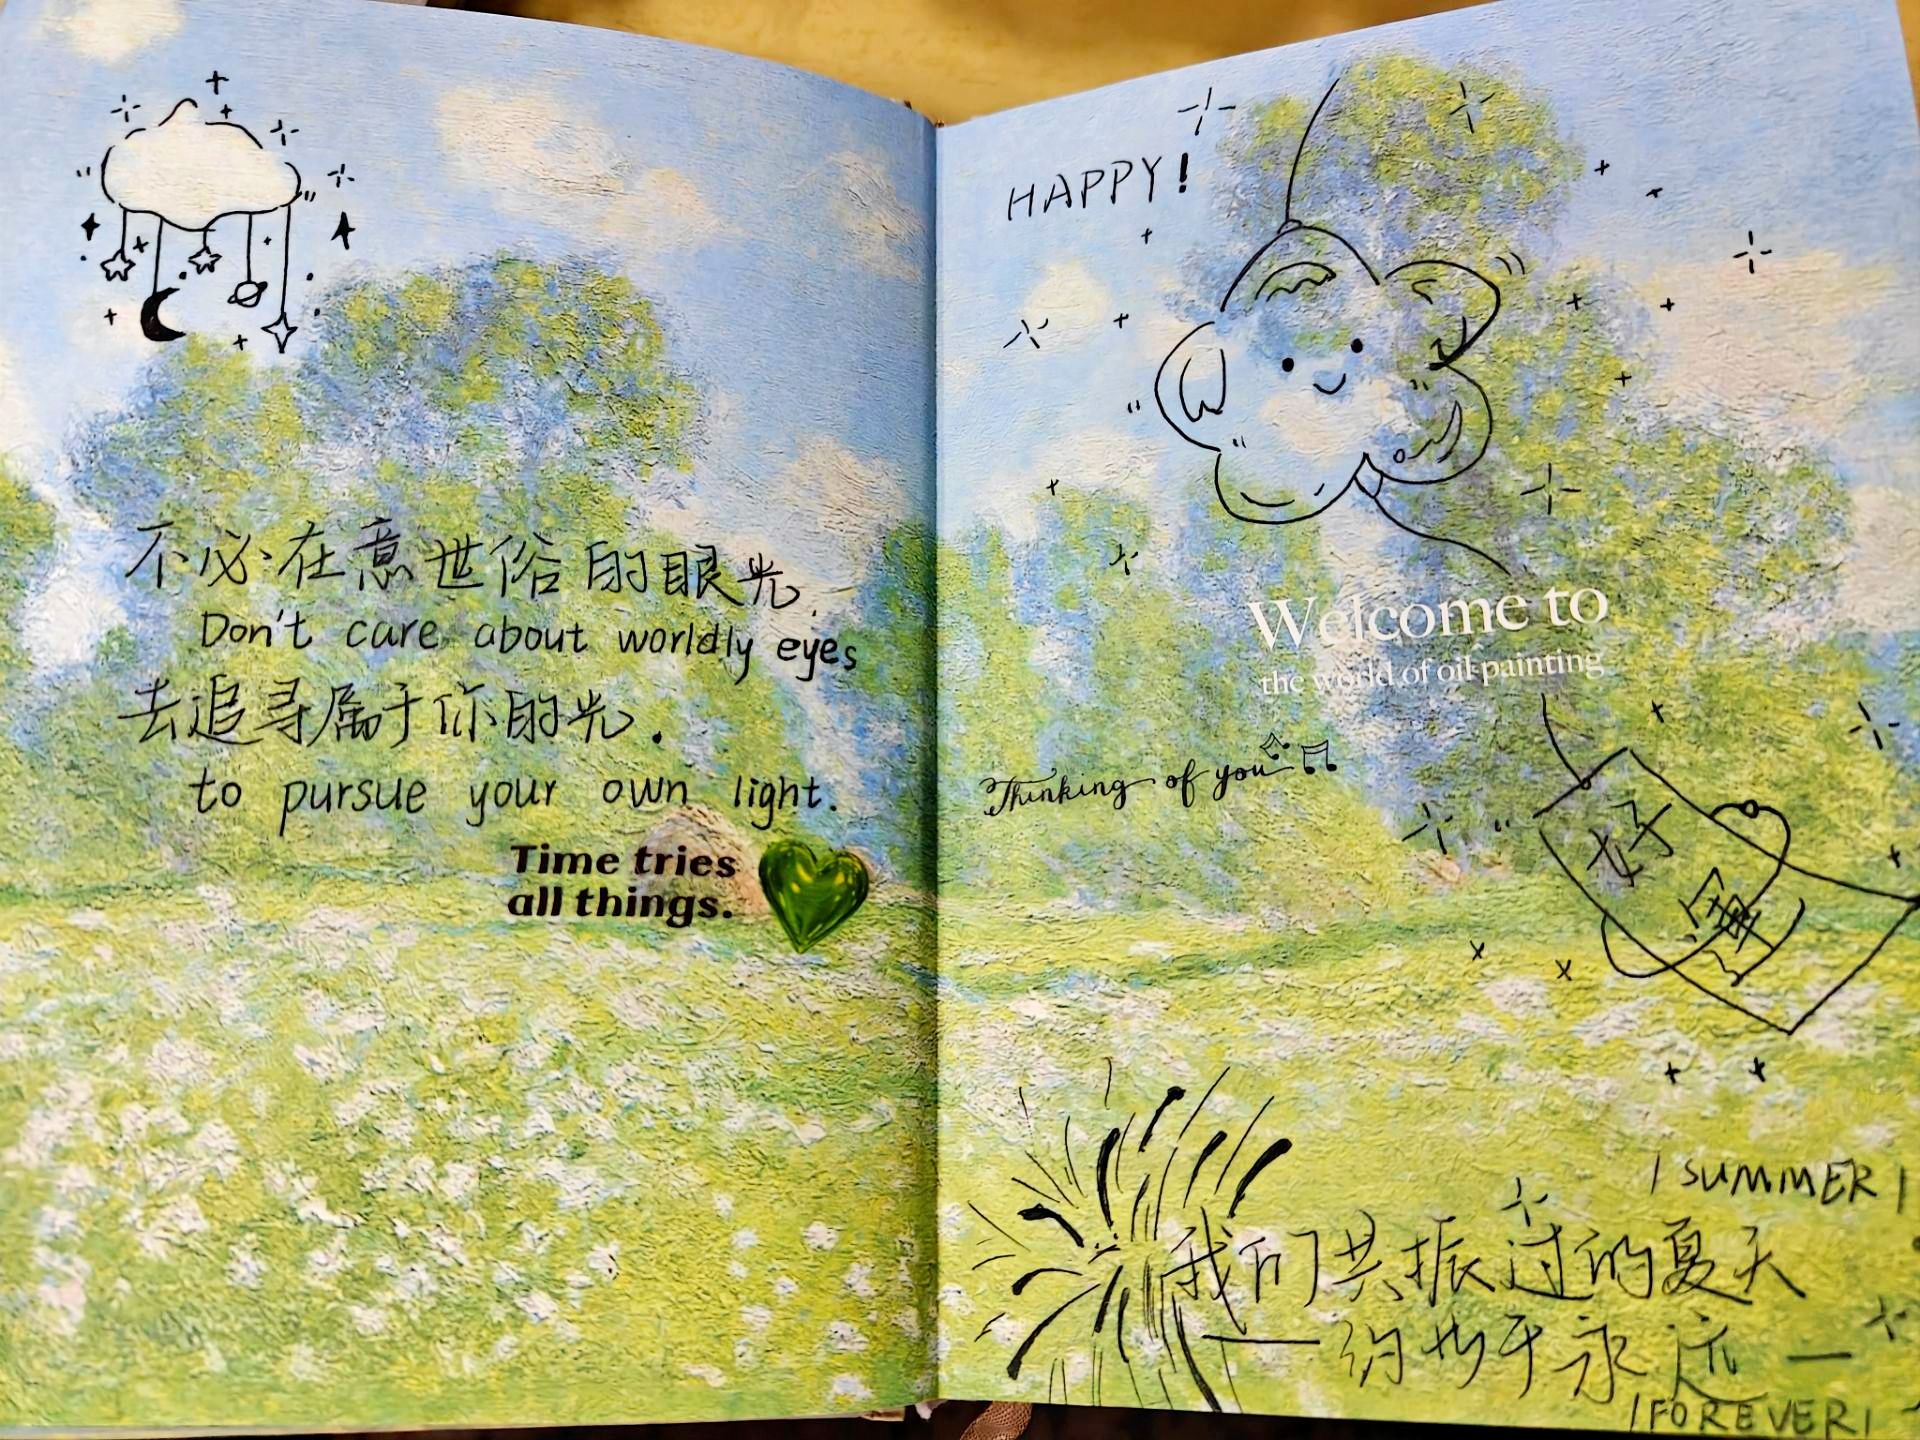 不必在意世俗的眼光.
Don't care about worldly eyes
去追寻属于你的光.
to pursue your own light.
Time tries
all things.
HAPPY!
Welcome to
the world of oil painting
Thinking of you
好
/ SUMMER /
我们共振过的夏天
— 约于永远 —
/ FOREVER /